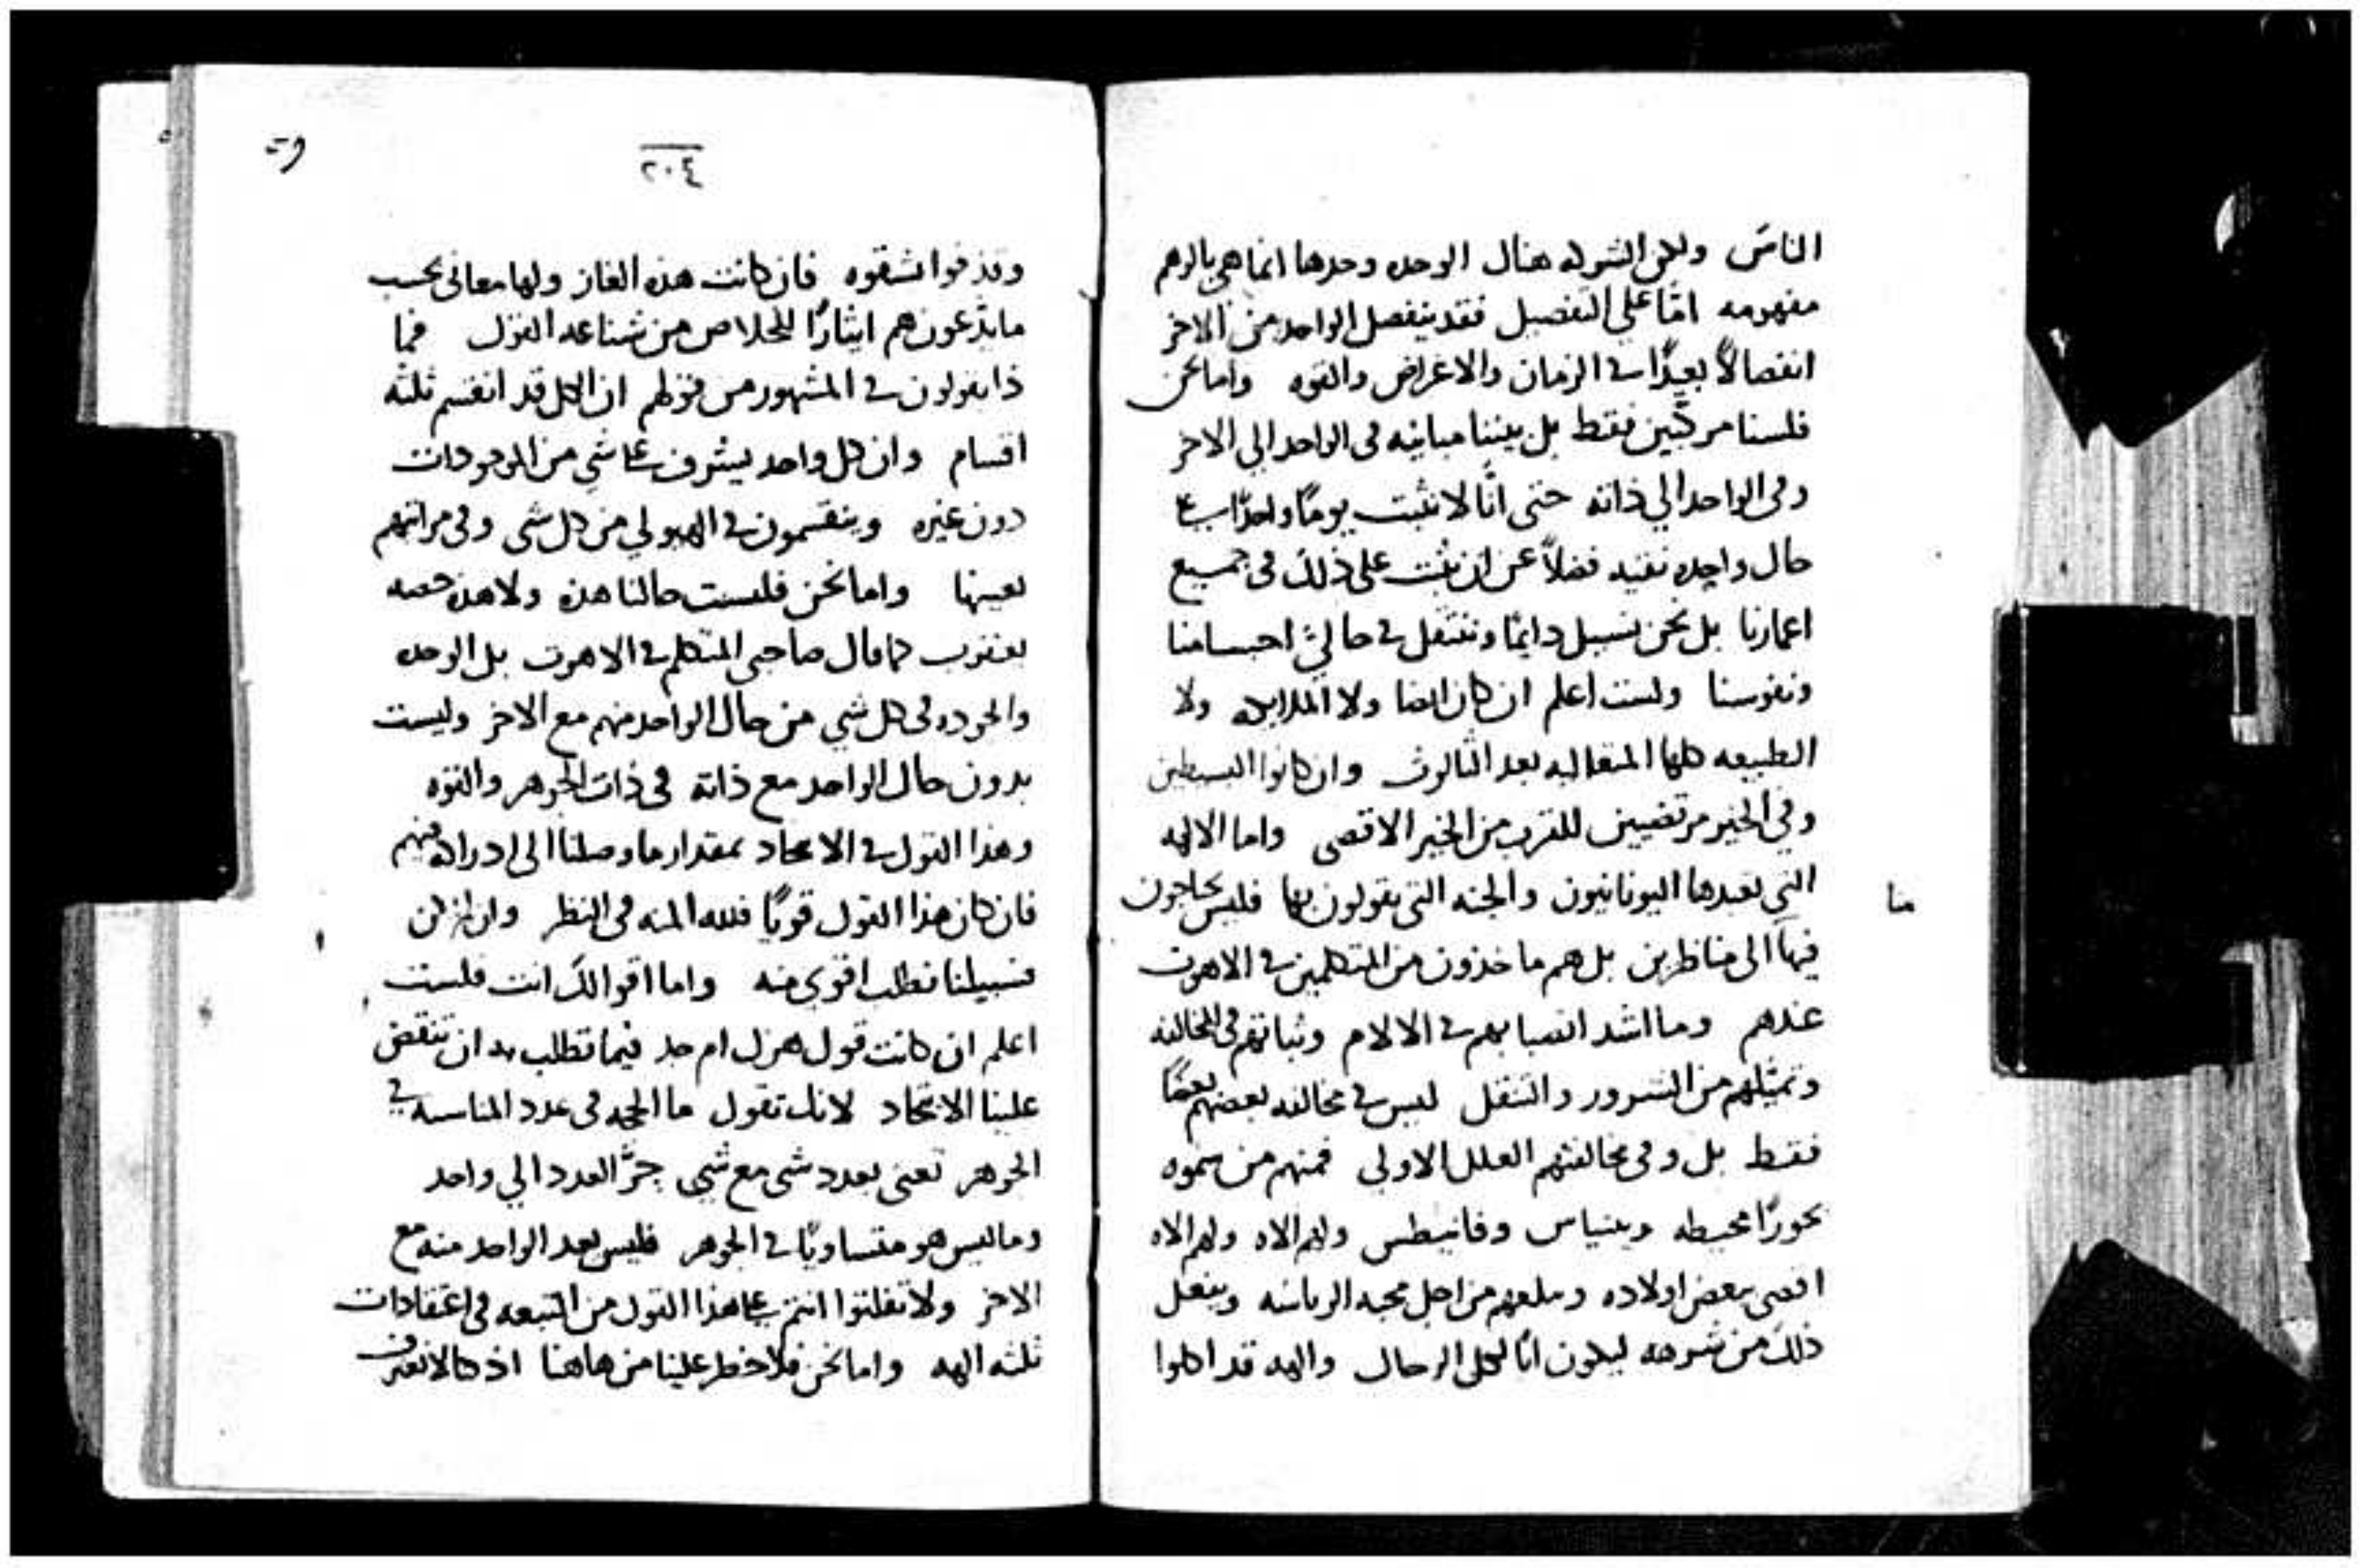 الناس ولكن الشركه هناك الوحده وحدها انما هي بالوهم
مفهومه امّا على التفصيل فقد ينفصل الواحد من الاخر
انفصالاً بعيدًا في الزمان والاعراض والقوه واما نحن
فلسنا مركبين فقط بل بيننا مباينه في الواحد الي الاخر
وفي الواحد الي ذاته حتى انّا لا نثبت يومًا واحدًا على
حال واحده نقيه فضلاً عن ان نثبت على ذلك في جميع
اعمارنا بل نحن نسيل دايمًا وننتقل في حالتي اجسامنا
ونفوسنا ولست اعلم ان كان ايضا ولا الملايكه ولا
الطبيعه كلها المتعاليه بعد الثالوث وان كانوا البسيطين
وفي الخير مرتضيين للقرب من الخير الاقصى واما الالهه
التي تعبدها اليونانيون والجنه التي يقولون بها فليس يحاجون
منا
فيها الى مناظرين بل هم ماخذون من المتكلمين في الاهوت
عندهم وما اشد انصبابهم في الالام وثباتهم في المخالفه
وتمثيلهم من الشرور والتنقل ليس في مخالفه بعضهم بعضًا
فقط بل وفي مخالفتهم العلل الاولى فمنهم من سموه
بحورًا محيطه وفانيطس ولهم الاه ولهم الاه
اقصى بعض اولاده من اجل محبه الرياسه ويفعل
ذلك من شرهه ليكون ابًا لكل الرجال والهه قد اكلوا
٢٠٤
وقذفوا شقوه فان كانت هذه الغاز ولها معانى بحسب
ما يدّعون هم ايثارًا للخلاص من شناعه القول فما
ذا يقولون في المشهور من قولهم ان الكل قد انقسم ثلثه
اقسام وان كل واحد يشرف على شي من الموجودات
دون غيره وينقسمون في الهيولي من كل شى وفي مراتبهم
بعينها واما نحن فليست حالنا هذه ولا هذه حصه
يعقوب كما قال صاحبي المتكلم في الاهوت بل الوحده
والجوده في كل شي من حال الواحد منهم مع الاخر وليست
بدون حال الواحد مع ذاته في ذات الجوهر والقوه
وهذا القول في الاتحاد بمقدار ما وصلنا الى ادراكه منهم
فان كان هذا القول قويًا فلله المنه في النظر وان لم يكن
فسبيلنا نطلب اقوى منه واما اقوالك انت فلست
اعلم ان كانت قول هزل ام جد فيما تطلب به ان تنقض
علينا الاتحاد لانك تقول ما الحجه في عدد المناسبه في
الجوهر تعنى بعدد شى مع شي جرّ العدد الي واحد
وما ليس هو متساويًا في الجوهر فليس بعد الواحد منه مع
الاخر ولا تفلتوا انتم على هذا القول من التبعه في اعتقادات
ثلثه الهه واما نحن فلا خطر علينا من هاهنا اذ كنا لا نعترف